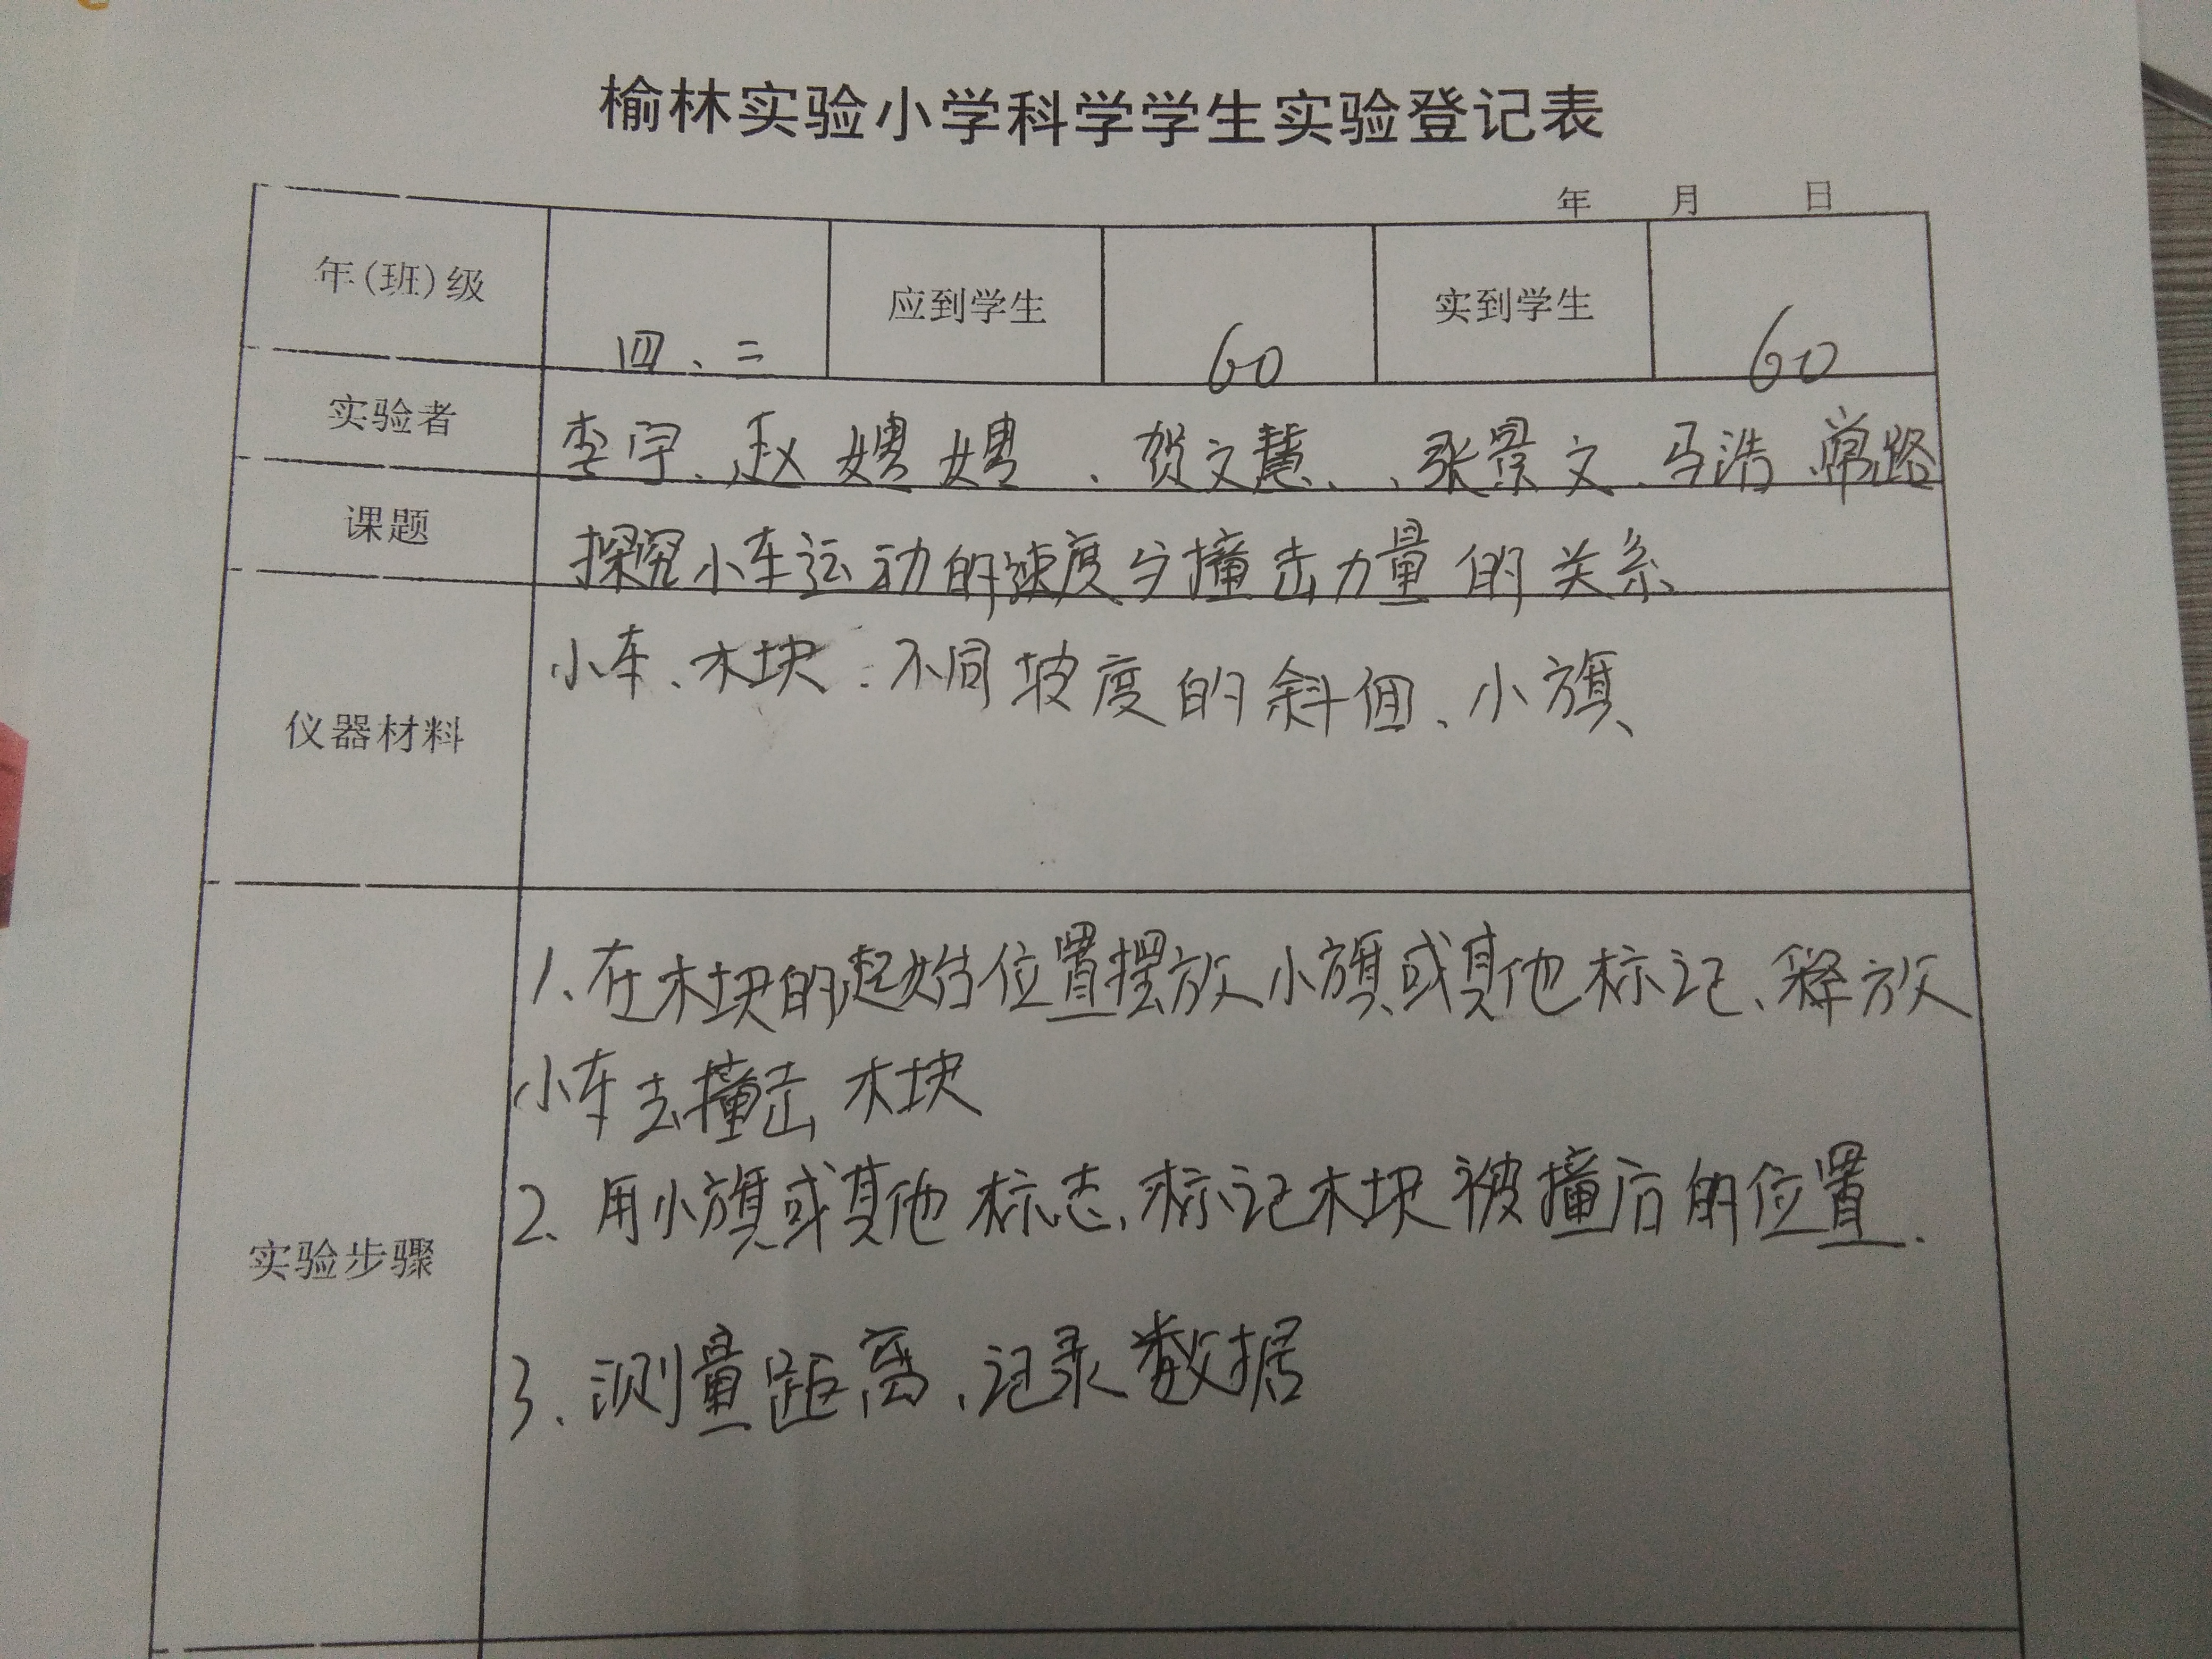 榆林实验小学科学学生实验登记表
年 月 日
年(班)级 四、二 应到学生 60 实到学生 60
实验者 李宇、赵娉娉、贺文慧、、张景文、马浩、常路
课题 探究小车运动的速度与撞击力量的关系
仪器材料 小车、木块、不同坡度的斜面、小旗
实验步骤
1、在木块的起始位置摆放小旗或其他标记、释放
小车去撞击木块
2、用小旗或其他标志、标记木块被撞后的位置.
3、测量距离、记录数据